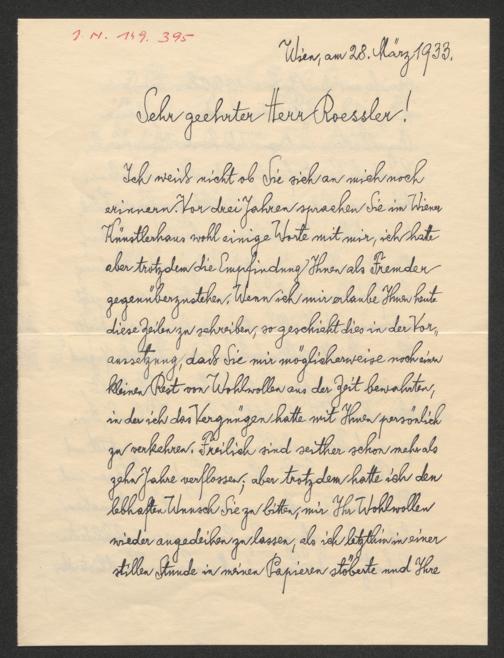 J. N. 149.395
Wien, am 28. März 1933.
Sehr geehrter Herr Roessler!
Ich weiß nicht ob Sie sich an mich noch
erinnern. Vor drei Jahren sprachen Sie im Wiener
Künstlerhaus wohl einige Worte mit mir, ich hatte
aber trotzdem die Empfindung Ihnen als Fremder
gegenüberzustehen. Wenn ich mir erlaube Ihnen heute
diese Zeilen zu schreiben, so geschieht dies in der Vor„
aussetzung, daß Sie mir möglicherweise noch einen
kleinen Rest von Wohlwollen aus der Zeit bewahrten,
in der ich das Vergnügen hatte mit Ihnen persönlich
zu verkehren. Freilich sind seither schon mehr als
zehn Jahre verflossen; aber trotzdem hatte ich den
lebhaften Wunsch Sie zu bitten, mir Ihr Wohlwollen
wieder angedeihen zu lassen, als ich letzthin in einer
stillen Stunde in meinen Papieren stöberte und Ihre